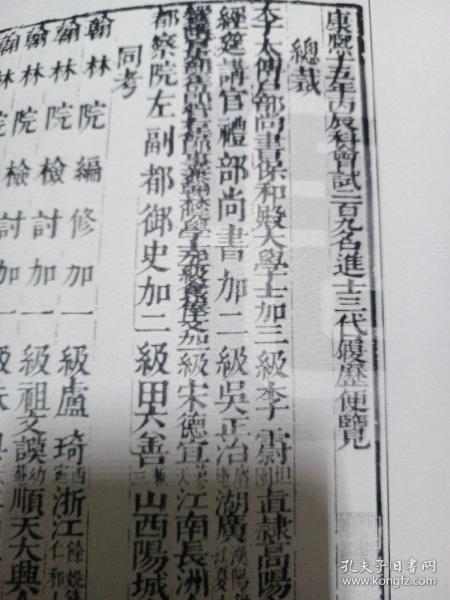 康熙十五年丙辰科會試二百九名進士三代履歷便覽
總裁
太傅 部尚書保和殿大學士加三級李霨 坦園 直隸高陽
經筵講官禮部尚書加二級吳正治 湖廣 漢陽
加一級宋德宜 江南長洲
都察院左副都御史加二級田六善 山西陽城
同考
翰林院編修加一級盧琦 西 浙江 餘姚 仁和
翰林院檢討加一級祖文謨 幼 順天大興
翰林院檢討加一級
翰林院
孔夫子旧书网